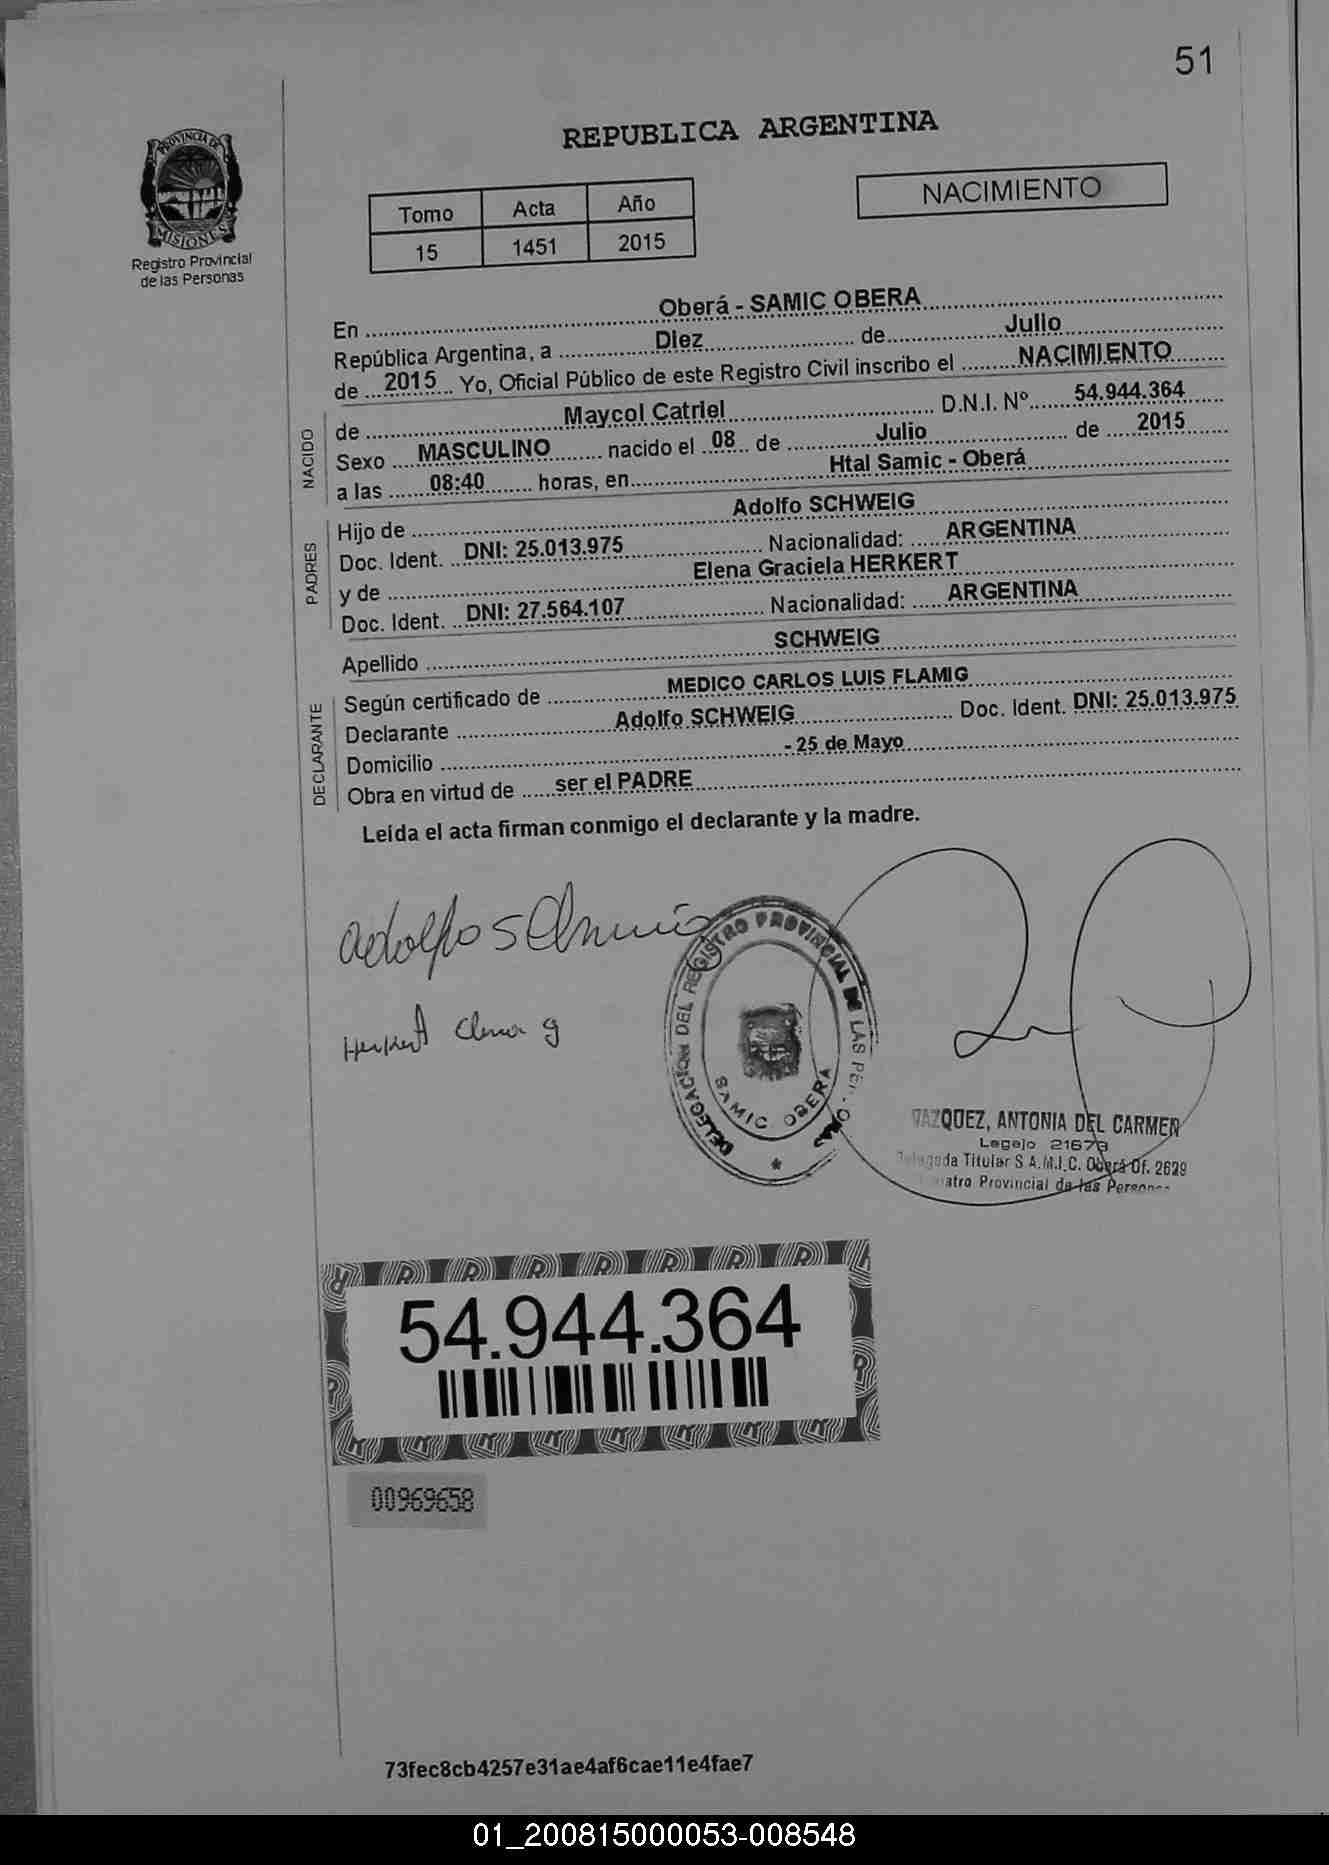 51
PROVINCIA DE
MISIONES
Registro Provincial
de las Personas
REPUBLICA ARGENTINA
Tomo Acta Año
15 1451 2015
NACIMIENTO
En Oberá - SAMIC OBERA
República Argentina, a Diez de Julio
de 2015 Yo, Oficial Público de este Registro Civil inscribo el NACIMIENTO
NACIDO
de Maycol Catriel D.N.I. Nº 54.944.364
Sexo MASCULINO nacido el 08 de Julio de 2015
a las 08:40 horas, en Htal Samic - Oberá
PADRES
Hijo de Adolfo SCHWEIG
Doc. Ident. DNI: 25.013.975 Nacionalidad: ARGENTINA
y de Elena Graciela HERKERT
Doc. Ident. DNI: 27.564.107 Nacionalidad: ARGENTINA
Apellido SCHWEIG
DECLARANTE
Según certificado de MEDICO CARLOS LUIS FLAMIG
Declarante Adolfo SCHWEIG Doc. Ident. DNI: 25.013.975
Domicilio - 25 de Mayo
Obra en virtud de ser el PADRE
Leída el acta firman conmigo el declarante y la madre.
Adolfo
Herkert Elena g
DELEGACION DEL REGISTRO PROVINCIAL DE LAS
SAMIC OBERA
VAZQUEZ, ANTONIA DEL CARMEN
Legajo 21673
Titular S.A.M.I.C. Oberá Of. 2629
Provincial de las Personas
54.944.364
00969658
73fec8cb4257e31ae4af6cae11e4fae7
01_200815000053-008548